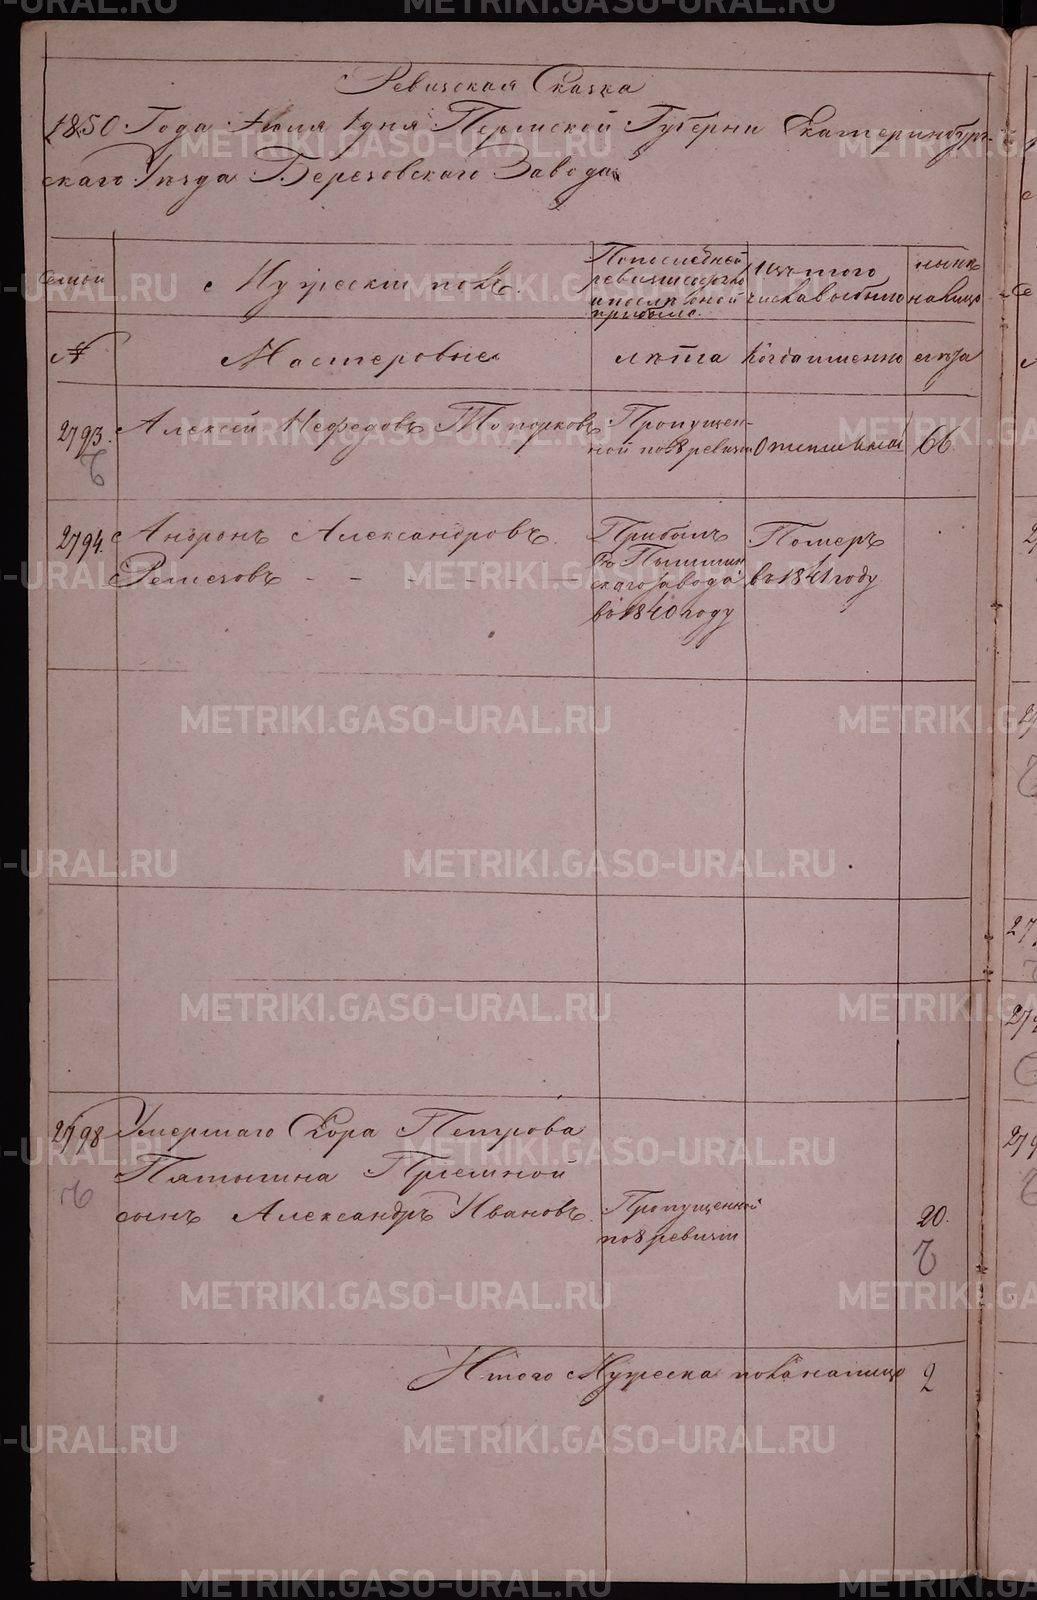 Ревизская Сказка
1850 Года Июля 1 дня Пермской Губерни Екатеринбург-
скаго Уезда Березовскаго Завода
Семьи
Мужескiй полъ.
По последней ревизии состояло и после оной прибыло.
Изъ того числа выбыло
ныне на лицо
№
Мастеровые
лета
Когда именно
лета
2793.
Алексей Мефедовъ Топорковъ
Пропущен-
ной по 8 ревизи
66.
2794.
Андронъ Александровъ
Ремезовъ
Прибылъ
съ Пышмин
скаго завода
въ 1840 году
Померъ
въ 1841 году
2798
Умершаго Егора Петрова
Пятыгина Прiемной
сынъ Александръ Ивановъ.
Пропущенной
по 8 ревизiи
20.
Итого Мужеска пола на лицо 2
METRIKI.GASO-URAL.RU